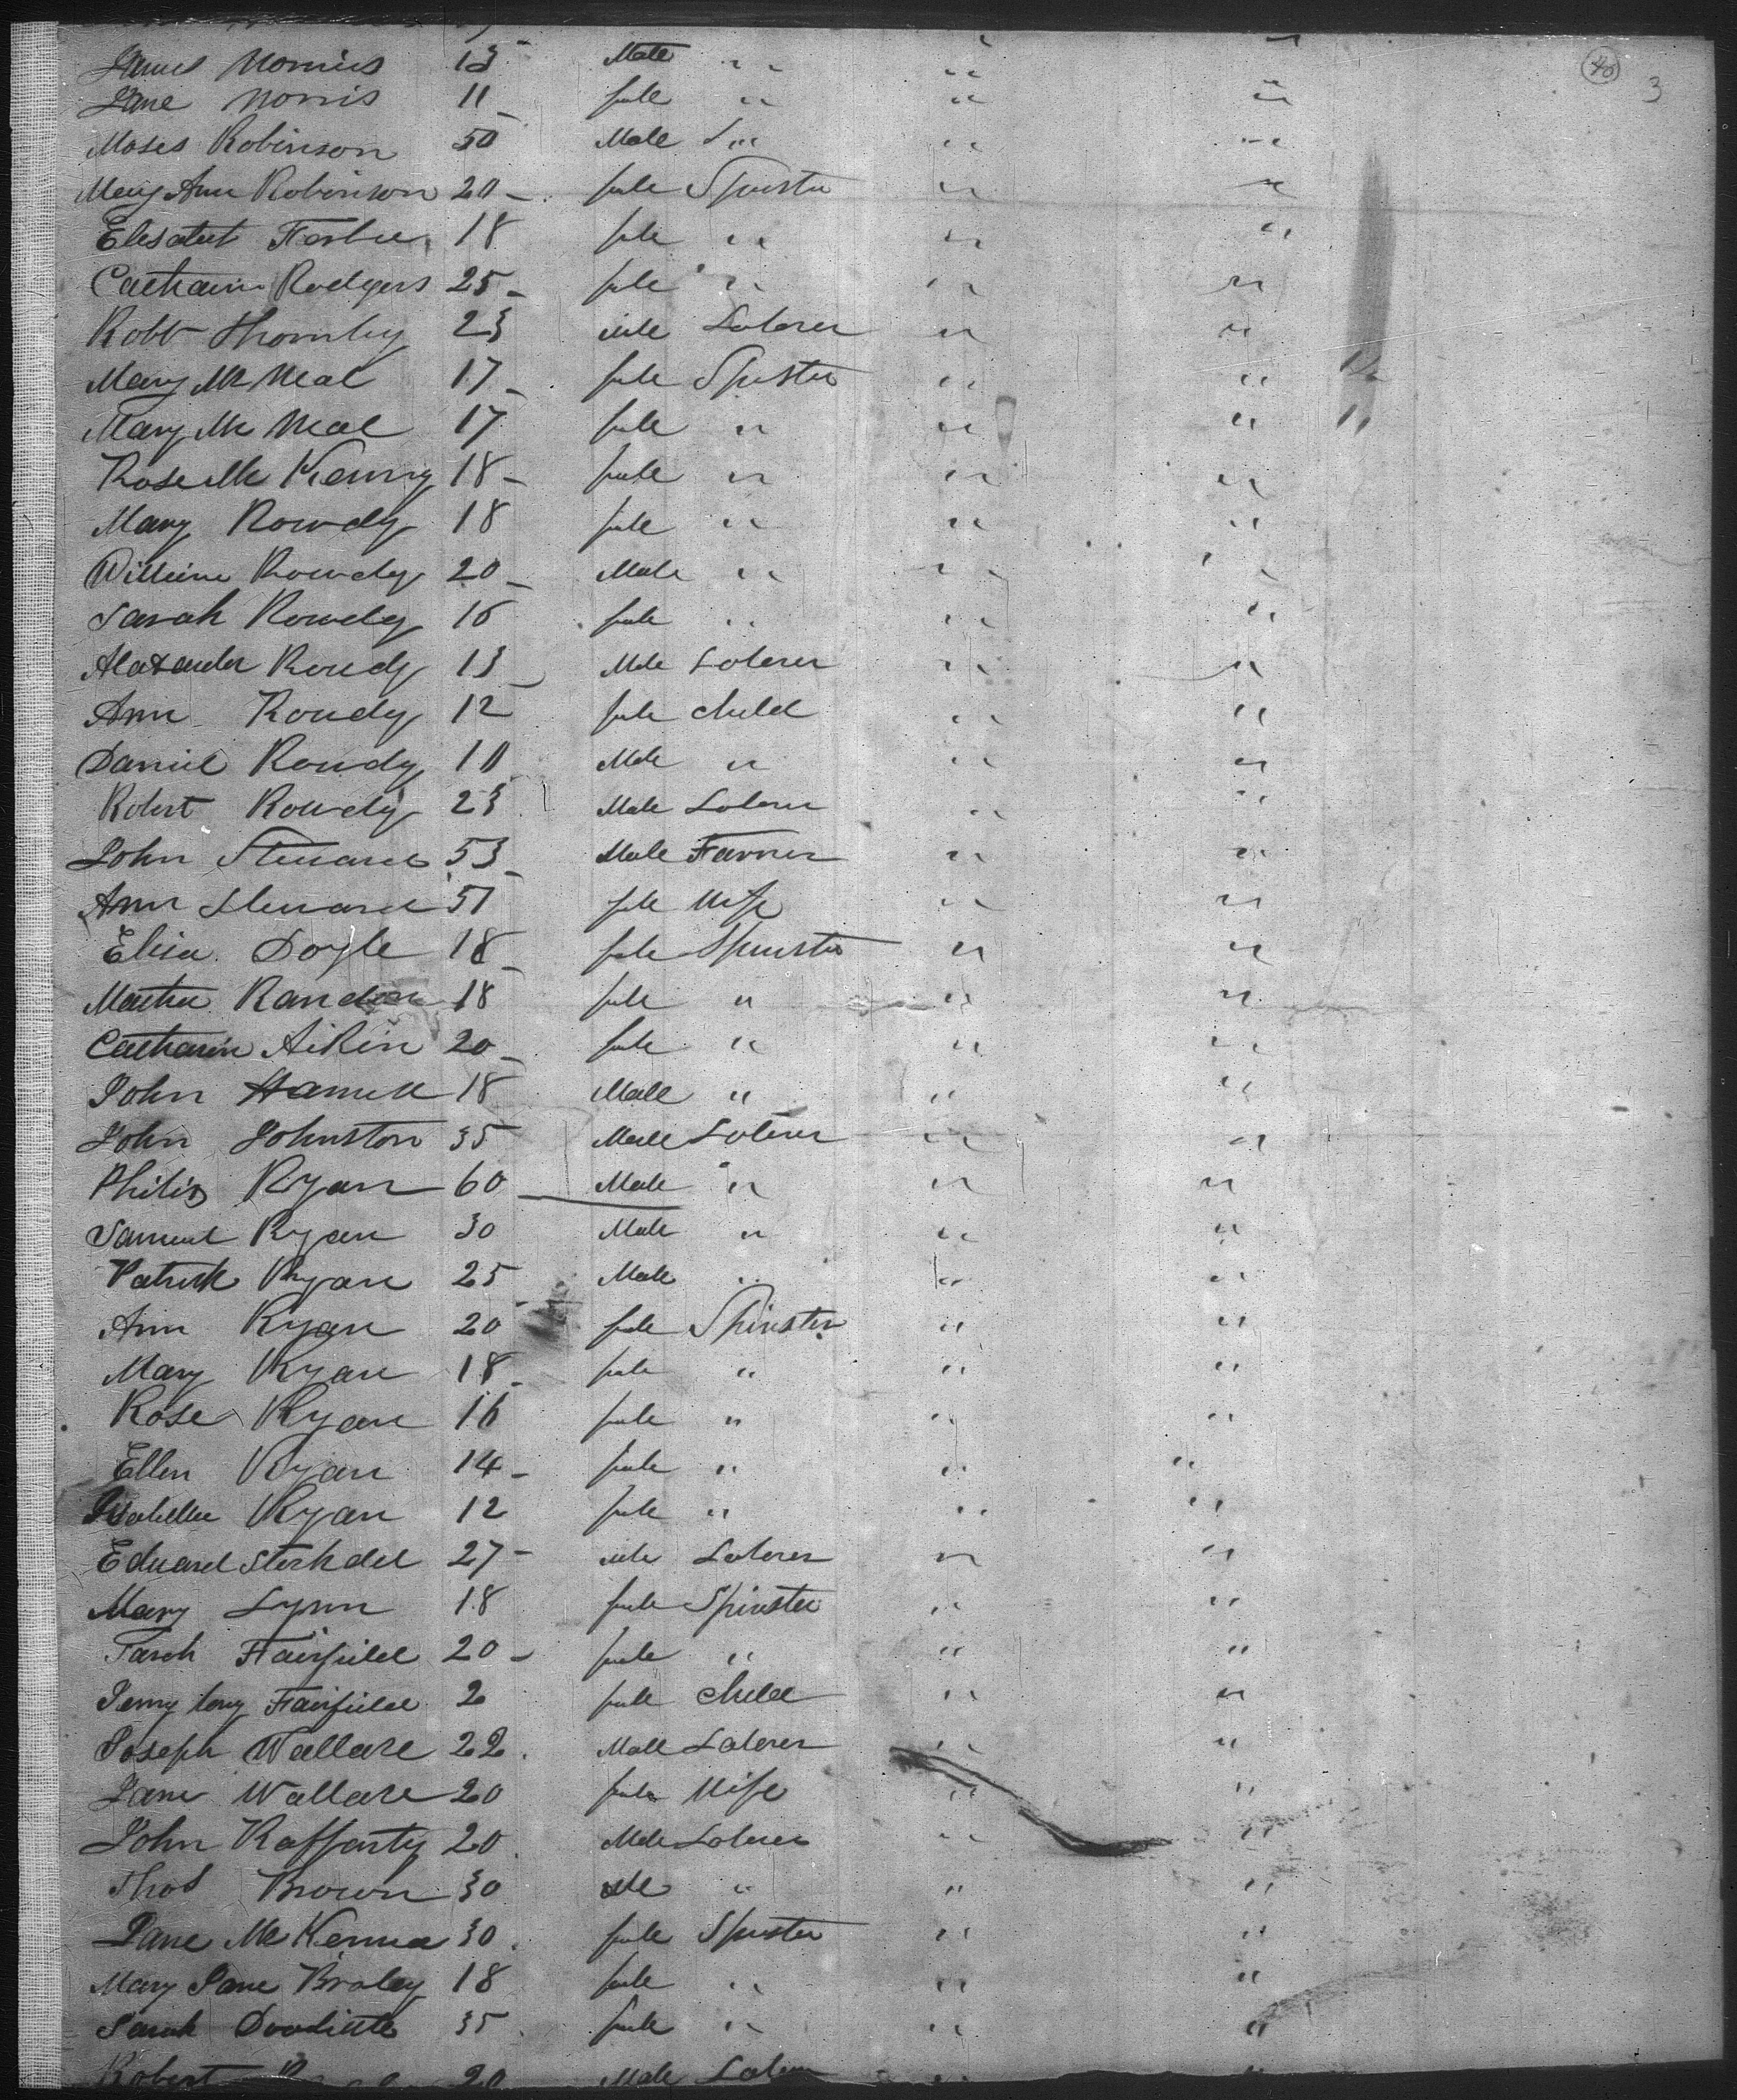 40 3
James Norris 13 Male " " "
Jane Norris 11 fmle " " "
Moses Robinson 50 Male L " " "
Mary Ann Robinson 20 fmle Spinster " "
Elesabet 18 fmle " " "
Catharin Rodgers 25 fmle " " "
Robt Thornby 23 mle Laborer " "
Mary Mc Neal 17 fmle Spinster " "
Mary Mc Neal 17 fmle " " "
Rose Mc Kenny 18 fmle " " "
Mary Rowdy 18 fmle " " "
William Rowdy 20 Male " " "
Sarah Rowdy 16 fmle " " "
Alaxander Rowdy 13 Male Laborer " "
Ann Rowdy 12 fmle child " "
Daniel Rowdy 10 Male " " "
Robert Rowdy 23 Male Laborer " "
John Steward 53 Male Farmer " "
Ann Steward 51 fmle Wife " "
Elisa Doyle 18 fmle Spinster " "
Martha 18 fmle " " "
Catharin Aikin 20 fmle " " "
John 18 Male " " "
John Johnston 35 Male Laborer " "
Philip Ryan 60 Male " " "
Samuel Ryan 30 Male " " "
Patrick Ryan 25 Male " " "
Ann Ryan 20 fmle Spinster " "
Mary Ryan 18 fmle " " "
Rose Ryan 16 fmle " " "
Ellen Ryan 14 fmle " " "
Isabella Ryan 12 fmle " " "
Edward Stockdel 27 mle Laborer " "
Mary Lynn 18 fmle Spinster " "
Sarah Fairfield 20 fmle " " "
Fairfield 2 fmle child " "
Joseph Wallace 22 Male Laborer " "
Jane Wallace 20 fmle Wife " "
John Rafferty 20 Male Laborer " "
Thos Brown 30 Mle " " "
Jane Mc Kenna 30 fmle Spinster " "
Mary Jane Braley 18 fmle " " "
Sarah Doolittle 35 fmle " " "
Robert 20 Male Laborer " "